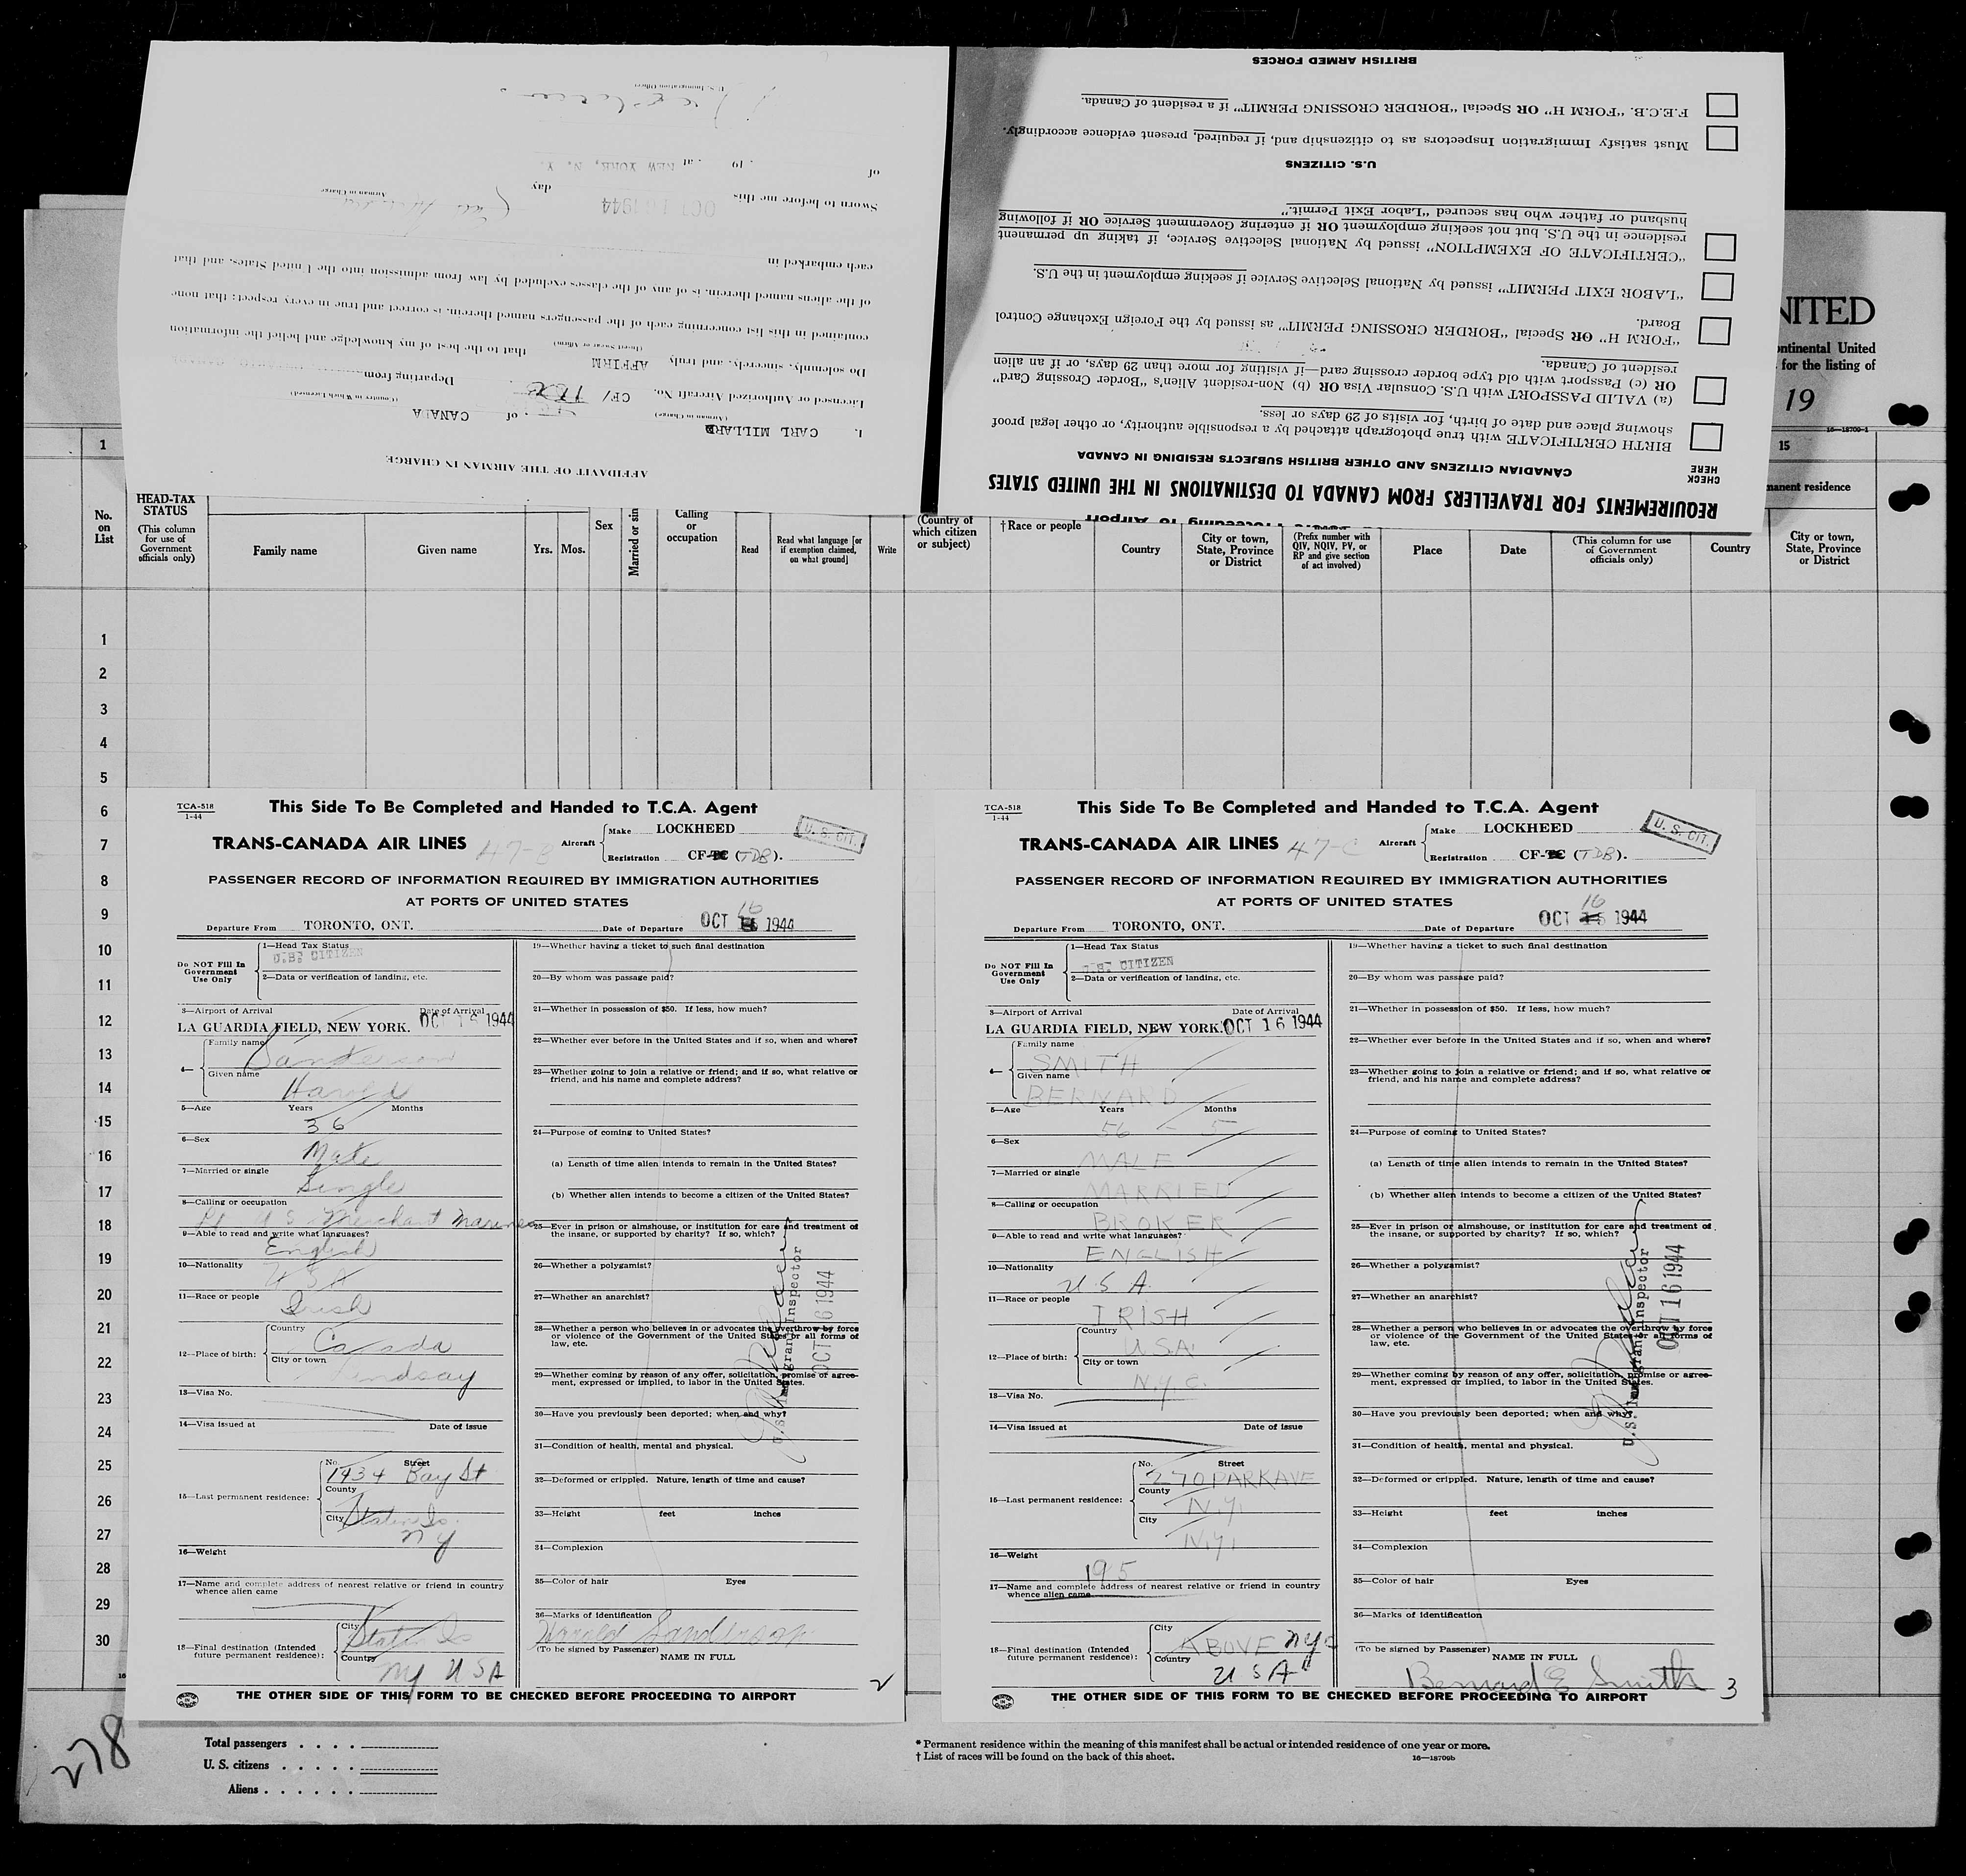 BRITISH ARMED FORCES
F.E.C.B. "FORM H" OR Special "BORDER CROSSING PERMIT" if a resident of Canada.
Must satisfy Immigration Inspectors as to citizenship and, if required, present evidence accordingly.
U.S. CITIZENS
"CERTIFICATE OF EXEMPTION" issued by National Selective Service, if taking up permanent
residence in the U.S. but not seeking employment OR if entering Government Service OR if following
husband or father who has secured "Labor Exit Permit."
"LABOR EXIT PERMIT" issued by National Selective Service if seeking employment in the U.S.
"FORM H" OR Special "BORDER CROSSING PERMIT" as issued by the Foreign Exchange Control
Board.
(a) VALID PASSPORT with U.S. Consular Visa OR (b) Non-resident Alien's "Border Crossing Card"
OR (c) Passport with old type border crossing card—if visiting for more than 29 days, or if an alien
resident of Canada.
BIRTH CERTIFICATE with true photograph attached by a responsible authority, or other legal proof
showing place and date of birth, for visits of 29 days or less.
CANADIAN CITIZENS AND OTHER BRITISH SUBJECTS RESIDING IN CANADA
CHECK
HERE
REQUIREMENTS FOR TRAVELLERS FROM CANADA TO DESTINATIONS IN THE UNITED STATES
AFFIDAVIT OF THE AIRMAN IN CHARGE
I, CARL MILLARD of CANADA
(Airman in Charge) (Country in Which Licensed)
Licensed or Authorized Aircraft No. CF/ Departing from
Do solemnly, sincerely, and truly AFFIRM that to the best of my knowledge and belief the information
(Insert Swear or Affirm)
contained in this list concerning each of the passengers named therein, is correct and true in every respect; that none
of the aliens named therein, is of any of the classes excluded by law from admission into the United States, and that
each embarked in
Airman in Charge
Sworn to before me this OCT 16 1944 day
of , 19 , at NEW YORK, N. Y.
U.S. Immigration Officer
NITED
ontinental United
for the listing of
19
16—18700-1
1
15
manent residence
No.
on
List
HEAD-TAX
STATUS
(This column
for use of
Government
officials only)
Family name
Given name
Yrs. Mos.
Sex
Married or sin
Calling
or
occupation
Read
Read what language [or
if exemption claimed,
on what ground]
Write
(Country of
which citizen
or subject)
†Race or people
Country
City or town,
State, Province
or District
(Prefix number with
QIV, NQIV, PV, or
RP and give section
of act involved)
Place
Date
(This column for use
of Government
officials only)
Country
City or town,
State, Province
or District
1
2
3
4
5
6
7
8
9
10
11
12
13
14
15
16
17
18
19
20
21
22
23
24
25
26
27
28
29
30
TCA-518
1-44
This Side To Be Completed and Handed to T.C.A. Agent
TRANS-CANADA AIR LINES 47-B
Aircraft
Make LOCKHEED
Registration CF-TC (TDB).
U. S. CIT.
PASSENGER RECORD OF INFORMATION REQUIRED BY IMMIGRATION AUTHORITIES
AT PORTS OF UNITED STATES
Departure From TORONTO, ONT. Date of Departure OCT 16 1944
Do NOT Fill In
Government
Use Only
1—Head Tax Status
U.S. CITIZEN
2—Data or verification of landing, etc.
3—Airport of Arrival Date of Arrival
LA GUARDIA FIELD, NEW YORK. OCT 16 1944
4—
Family name
Sanderson
Given name
Harold
5—Age Years Months
36
6—Sex
Male
7—Married or single
Single
8—Calling or occupation
Lt U S Merchant Marines
9—Able to read and write what languages?
English
10—Nationality
U S A
11—Race or people
Irish
12—Place of birth:
Country
Canada
City or town
Lindsay
13—Visa No.
14—Visa issued at Date of issue
15—Last permanent residence:
No. Street
1434 Bay St
County
City Staten Is.
N Y
16—Weight
17—Name and complete address of nearest relative or friend in country
whence alien came
18—Final destination (Intended
future permanent residence):
City
Staten Is
Country
NY U S A
19—Whether having a ticket to such final destination
20—By whom was passage paid?
21—Whether in possession of $50. If less, how much?
22—Whether ever before in the United States and if so, when and where?
23—Whether going to join a relative or friend; and if so, what relative or
friend, and his name and complete address?
24—Purpose of coming to United States?
(a) Length of time alien intends to remain in the United States?
(b) Whether alien intends to become a citizen of the United States?
25—Ever in prison or almshouse, or institution for care and treatment of
the insane, or supported by charity? If so, which?
26—Whether a polygamist?
27—Whether an anarchist?
28—Whether a person who believes in or advocates the overthrow by force
or violence of the Government of the United States or all forms of
law, etc.
29—Whether coming by reason of any offer, solicitation, promise or agree-
ment, expressed or implied, to labor in the United States.
30—Have you previously been deported; when and why?
31—Condition of health, mental and physical.
32—Deformed or crippled. Nature, length of time and cause?
33—Height feet inches
34—Complexion
35—Color of hair Eyes
36—Marks of identification
Harold Sanderson
(To be signed by Passenger)
NAME IN FULL
U.S. Immigrant Inspector
OCT 16 1944
2
THE OTHER SIDE OF THIS FORM TO BE CHECKED BEFORE PROCEEDING TO AIRPORT
TCA-518
1-44
This Side To Be Completed and Handed to T.C.A. Agent
TRANS-CANADA AIR LINES 47-C
Aircraft
Make LOCKHEED
Registration CF-TC (TDB).
U. S. CIT.
PASSENGER RECORD OF INFORMATION REQUIRED BY IMMIGRATION AUTHORITIES
AT PORTS OF UNITED STATES
Departure From TORONTO, ONT. Date of Departure OCT 16 1944
Do NOT Fill In
Government
Use Only
1—Head Tax Status
U.S. CITIZEN
2—Data or verification of landing, etc.
3—Airport of Arrival Date of Arrival
LA GUARDIA FIELD, NEW YORK. OCT 16 1944
4—
Family name
SMITH
Given name
BERNARD
5—Age Years Months
56 - 5
6—Sex
MALE
7—Married or single
MARRIED
8—Calling or occupation
BROKER
9—Able to read and write what languages?
ENGLISH
10—Nationality
U.S.A.
11—Race or people
IRISH
12—Place of birth:
Country
USA
City or town
N.Y.C.
13—Visa No.
14—Visa issued at Date of issue
15—Last permanent residence:
No. Street
270 PARK AVE
County
N.Y.
City
N.Y.
16—Weight
195
17—Name and complete address of nearest relative or friend in country
whence alien came
18—Final destination (Intended
future permanent residence):
City
ABOVE NYC
Country
U S A
19—Whether having a ticket to such final destination
20—By whom was passage paid?
21—Whether in possession of $50. If less, how much?
22—Whether ever before in the United States and if so, when and where?
23—Whether going to join a relative or friend; and if so, what relative or
friend, and his name and complete address?
24—Purpose of coming to United States?
(a) Length of time alien intends to remain in the United States?
(b) Whether alien intends to become a citizen of the United States?
25—Ever in prison or almshouse, or institution for care and treatment of
the insane, or supported by charity? If so, which?
26—Whether a polygamist?
27—Whether an anarchist?
28—Whether a person who believes in or advocates the overthrow by force
or violence of the Government of the United States or all forms of
law, etc.
29—Whether coming by reason of any offer, solicitation, promise or agree-
ment, expressed or implied, to labor in the United States.
30—Have you previously been deported; when and why?
31—Condition of health, mental and physical.
32—Deformed or crippled. Nature, length of time and cause?
33—Height feet inches
34—Complexion
35—Color of hair Eyes
36—Marks of identification
(To be signed by Passenger)
NAME IN FULL
Bernard E Smith
U.S. Immigrant Inspector
OCT 16 1944
3
THE OTHER SIDE OF THIS FORM TO BE CHECKED BEFORE PROCEEDING TO AIRPORT
278
Total passengers . . . .
U. S. citizens . . . . .
Aliens . . . . . .
* Permanent residence within the meaning of this manifest shall be actual or intended residence of one year or more.
† List of races will be found on the back of this sheet.
16—18700b